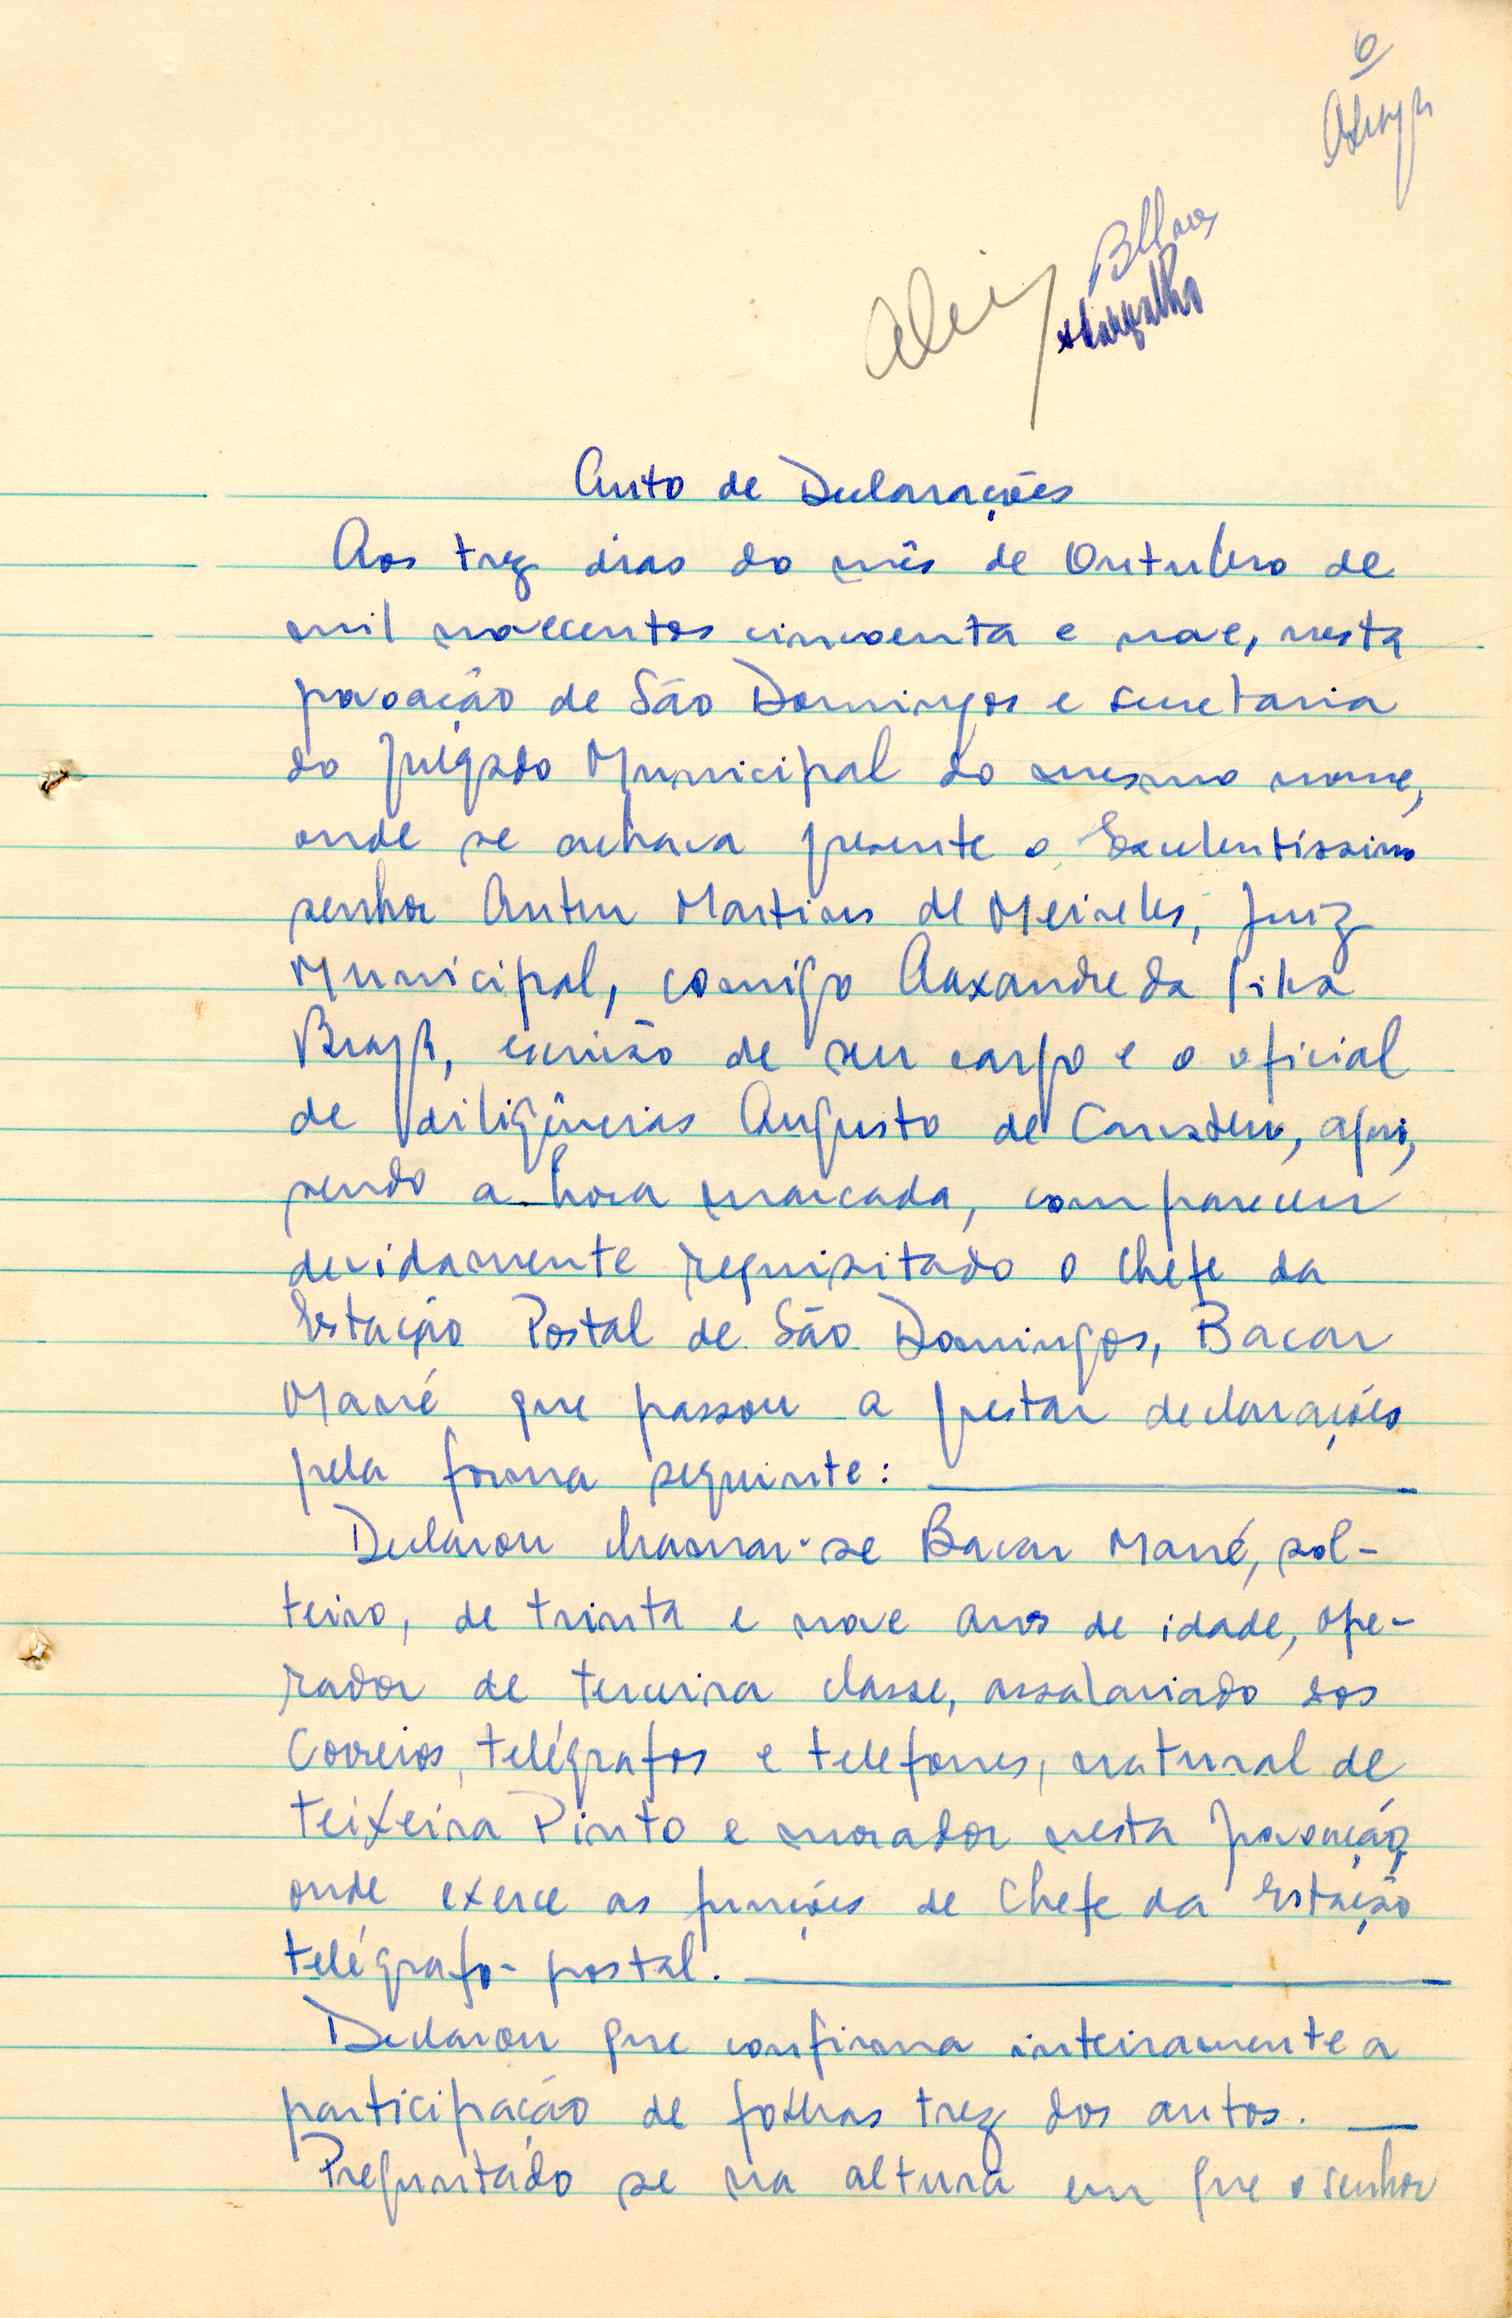 6
Carvalho
Auto de Declarações
Aos trez dias do mês de Outubro de
mil novecentos cincoenta e nove, nesta
povoação de São Domingos e secretaria
do Julgado Municipal do mesmo nome,
onde se achava presente o Excelentíssimo
senhor Martins de Meireles, Juiz
Municipal, comigo Alexandre da Silva
Braga, escrivão de seu cargo e o oficial
de diligências Augusto de Carvalho, aqui,
sendo a hora marcada, compareceu
devidamente requisitado o Chefe da
Estação Postal de São Domingos, Bacar
Mané que passou a prestar declarações
pela forma seguinte:
Declarou chamar-se Bacar Mané, sol-
teiro, de trinta e nove anos de idade, ope-
rador de terceira classe, assalariado dos
Correios, telégrafos e telefones, natural de
Teixeira Pinto e morador nesta povoação,
onde exerce as funções de Chefe da Estação
telégrafo-postal.
Declarou que confirma inteiramente a
participação de folhas trez dos autos.
Preguntado se na altura em que o senhor